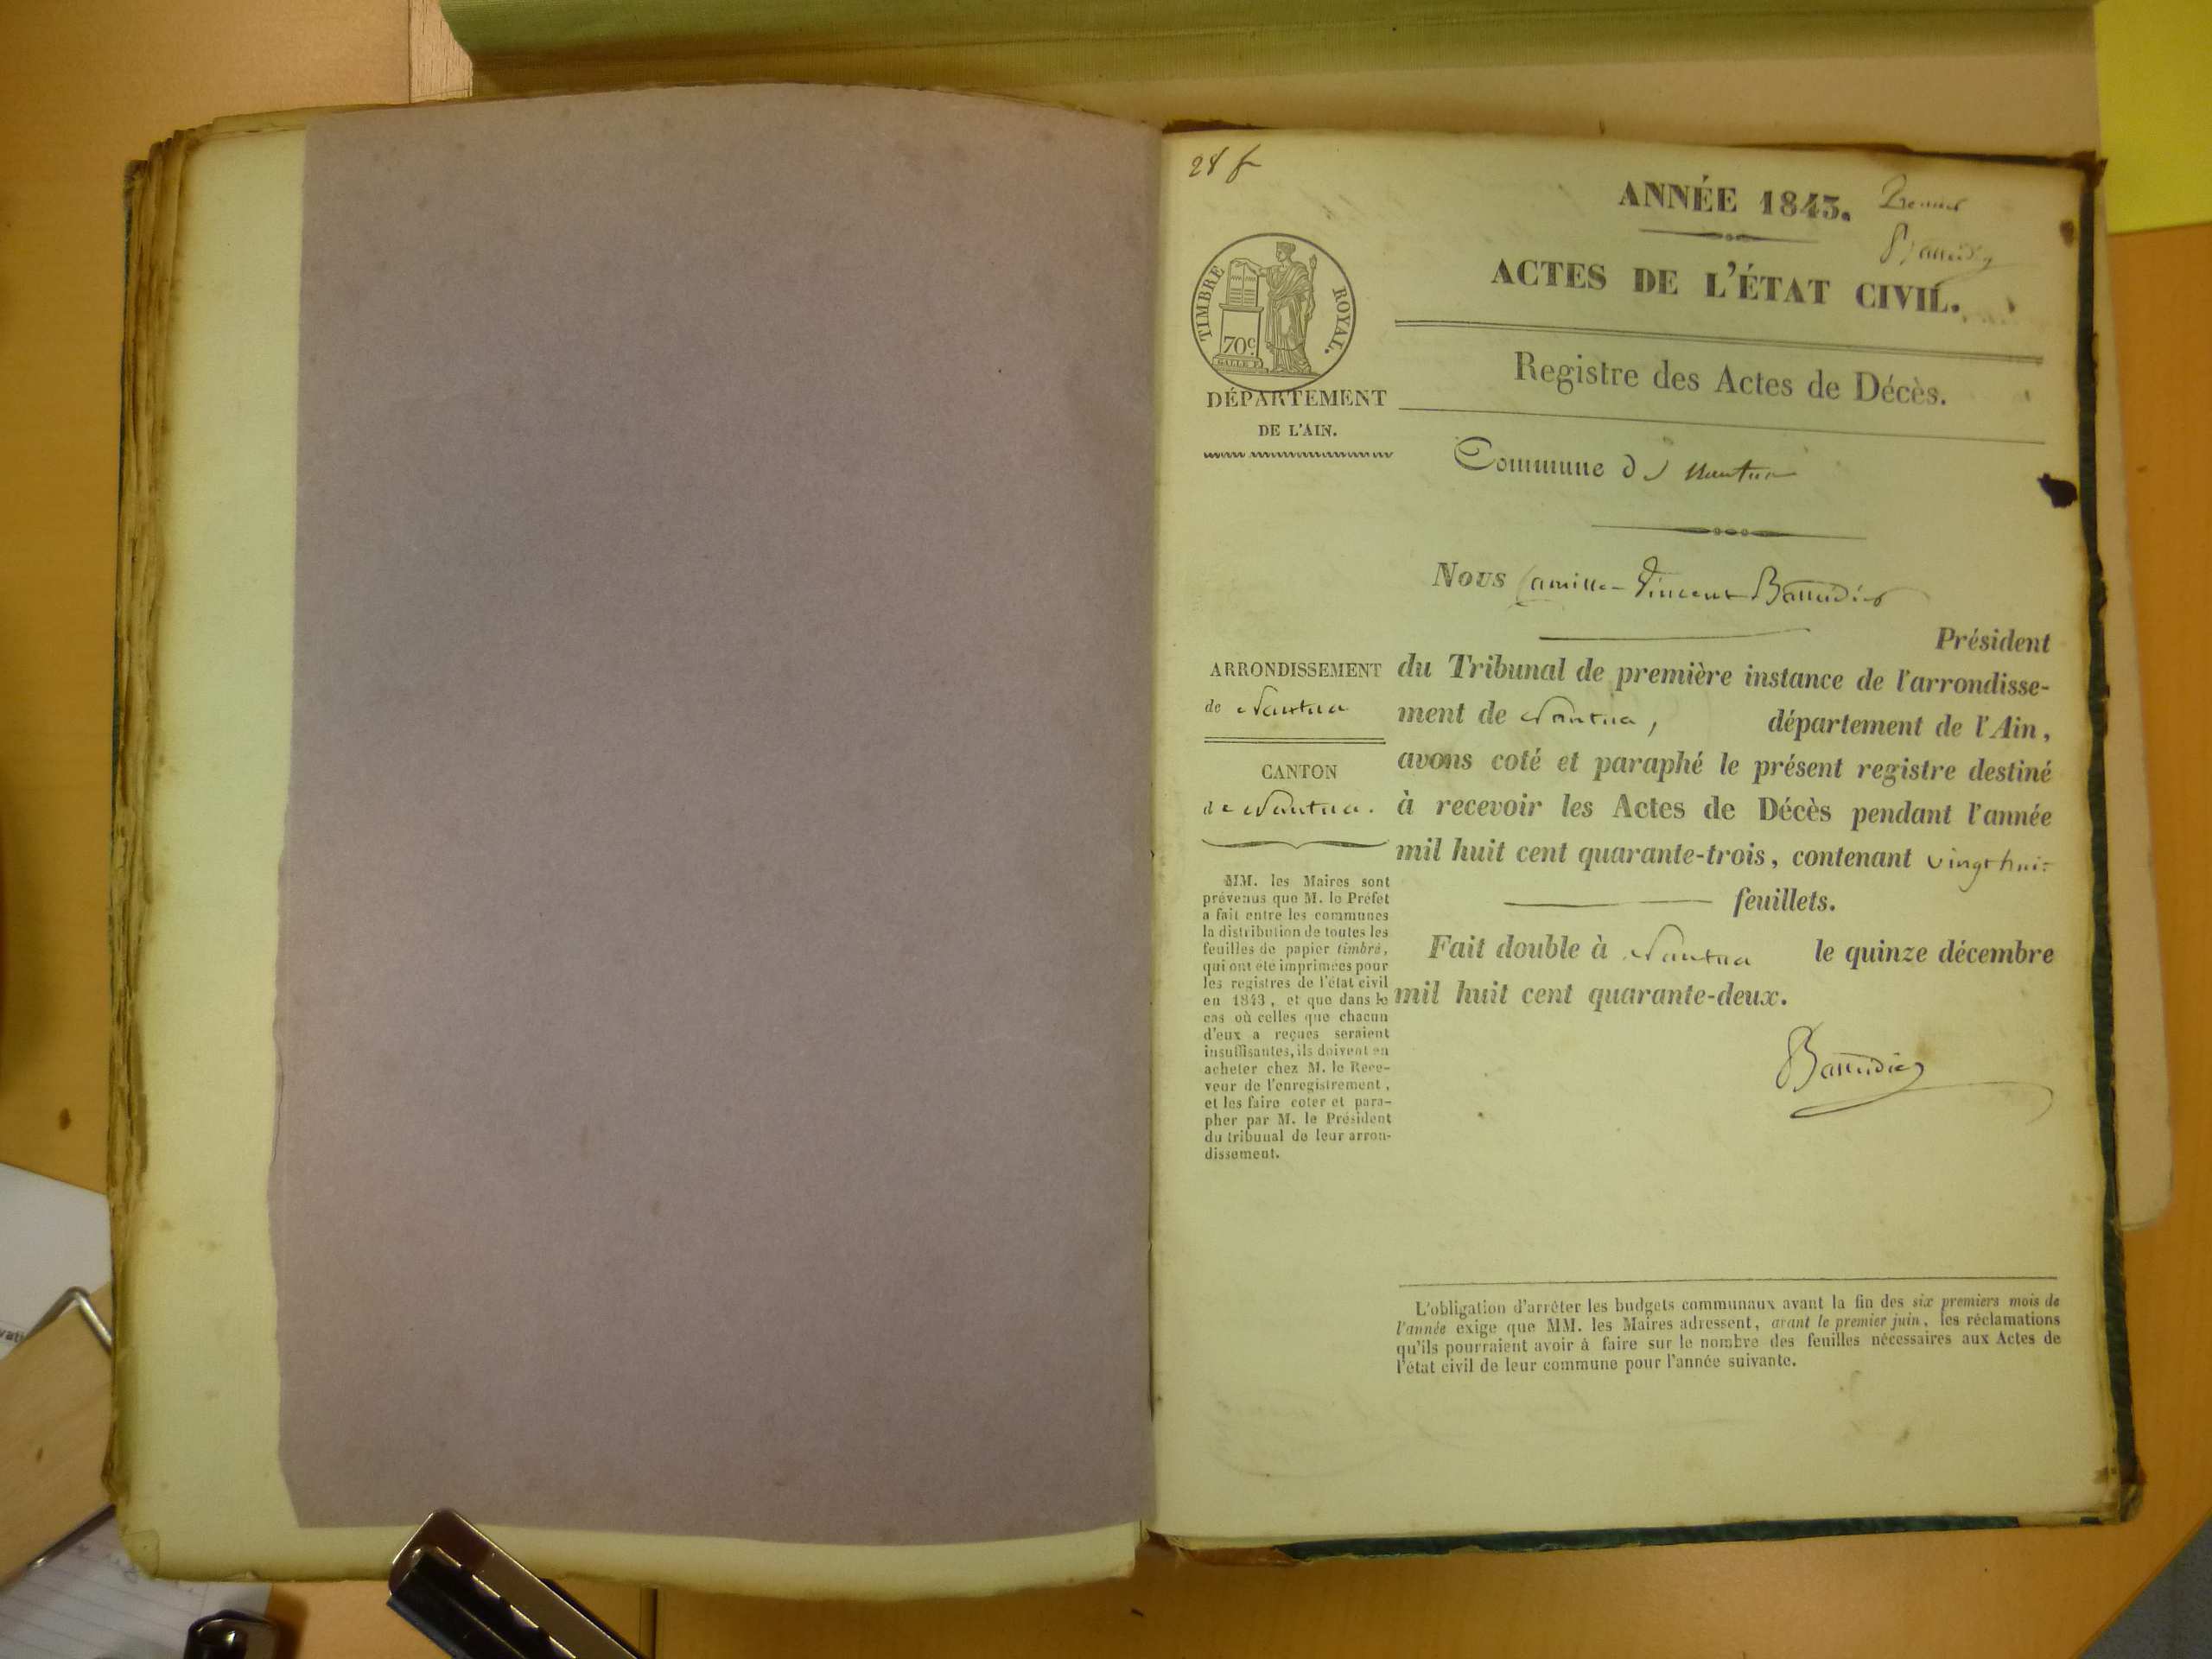 28 f
ANNÉE 1843.
Premier
ACTES DE L'ÉTAT CIVIL.
TIMBRE ROYAL.
70c
Registre des Actes de Décès.
DÉPARTEMENT
DE L'AIN.
Commune de Nantua
Nous Camille-Vincent Baudier
Président
du Tribunal de première instance de l'arrondisse-
ment de Nantua, département de l'Ain,
avons coté et paraphé le présent registre destiné
à recevoir les Actes de Décès pendant l'année
mil huit cent quarante-trois, contenant vingt huit
feuillets.
Fait double à Nantua le quinze décembre
mil huit cent quarante-deux.
ARRONDISSEMENT
de Nantua
CANTON
de Nantua.
MM. les Maires sont
prévenus que M. le Préfet
a fait entre les communes
la distribution de toutes les
feuilles de papier timbré,
qui ont été imprimées pour
les registres de l'état civil
en 1843, et que dans le
cas où celles que chacun
d'eux a reçues seraient
insuffisantes, ils doivent en
acheter chez M. le Rece-
veur de l'enregistrement,
et les faire coter et para-
pher par M. le Président
du tribunal de leur arron-
dissement.
L'obligation d'arrêter les budgets communaux avant la fin des six premiers mois de
l'année exige que MM. les Maires adressent, avant le premier juin, les réclamations
qu'ils pourraient avoir à faire sur le nombre des feuilles nécessaires aux Actes de
l'état civil de leur commune pour l'année suivante.